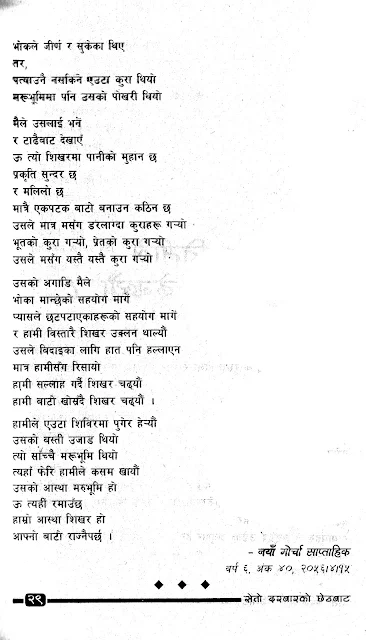 भोकले जीर्ण र सुकेका थिए
तर,
पत्याउनै नसकिने एउटा कुरा थियो
मरूभूमिमा पनि उसको पोखरी थियो
मैले उसलाई भनें
र टाढैबाट देखाएँ
ऊ त्यो शिखरमा पानीको मुहान छ
प्रकृति सुन्दर छ
र मलिलो छ
मात्रै एकपटक बाटो बनाउन कठिन छ
उसले मात्र मसंग डरलाग्दा कुराहरू गऱ्यो
भूतको कुरा गऱ्यो, प्रेतको कुरा गऱ्यो
उसले मसंग यस्तै यस्तै कुरा गऱ्यो
उसको अगाडि मैले
भोका मान्छेको सहयोग मागें
प्यासले छटपटाएकाहरूको सहयोग मागें
र हामी विस्तारै शिखर उक्लन थाल्यौं
उसले विदाइका लागि हात पनि हल्लाएन
मात्र हामीसँग रिसायो
हामी सल्लाह गर्दै शिखर चढ्यौं
हामी बाटो खोस्रदै शिखर चढ्यौं ।
हामीले एउटा शिविरमा पुगेर हेऱ्यौं
उसको बस्ती उजाड थियो
त्यो साँच्चै मरूभूमि थियो
त्यहाँ फेरि हामीले कसम खायौं
उसको आस्था मरुभूमि हो
ऊ त्यहीं रमाउँछ
हाम्रो आस्था शिखर हो
आफ्नो बाटो राज्नैपर्छ ।
- नयाँ गोर्खा साप्ताहिक
वर्ष ६, अंक ४०, २०५६।४।१५
२९ सेतो दरबारको छेउबाट